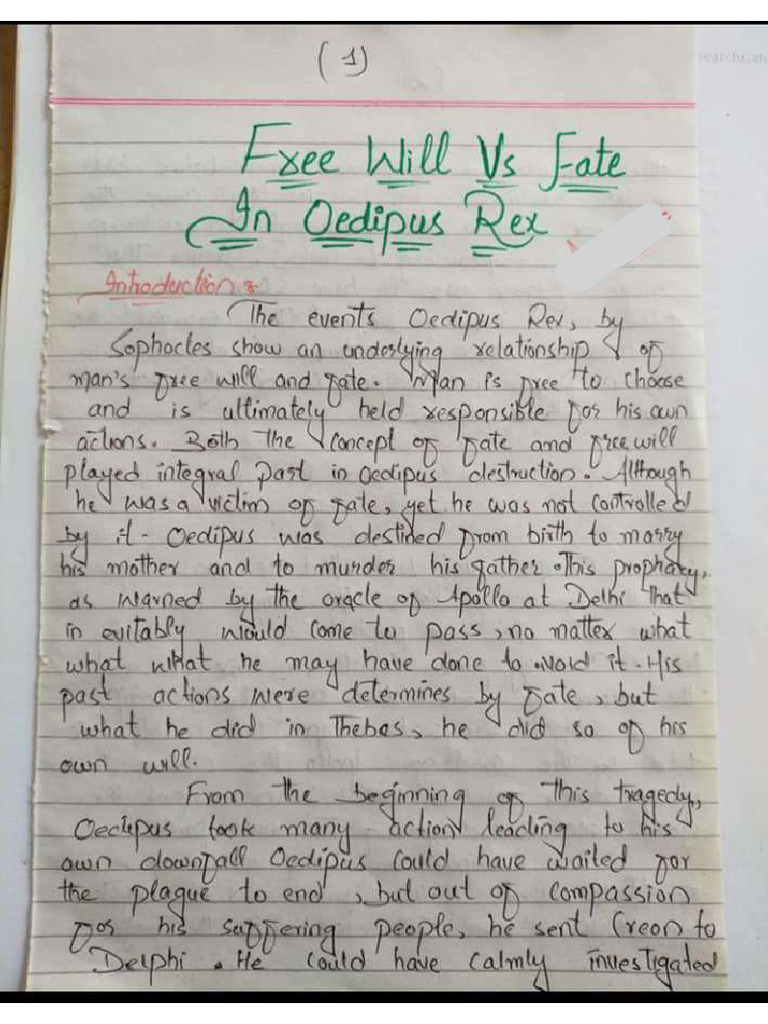 (1)
earchGate
Free Will Vs Fate
In Oedipus Rex
Introduction :
The events Oedipus Rex, by
Sophocles show an underlying relationship of
man's free will and fate. Man is free to choose
and is ultimately held responsible for his own
actions. Both the concept of fate and freewill
played integral part in oedipus destruction. Although
he was a victim of fate, yet he was not controlled
by it - Oedipus was destined from birth to marry
his mother and to murder his gather. This prophecy,
as warned by the oracle of Apollo at Delhi that
in evitably would come to pass, no matter what
what what he may have done to avoid it. His
past actions were determines by fate, but
what he did in Thebas, he did so of his
own will.
From the beginning of this tragedy,
Oedepus took many action leading to his
own downfall Oedipus could have waited for
the plague to end, but out of compassion
for his suffering people, he sent Creon to
Delphi. He could have calmly investigated